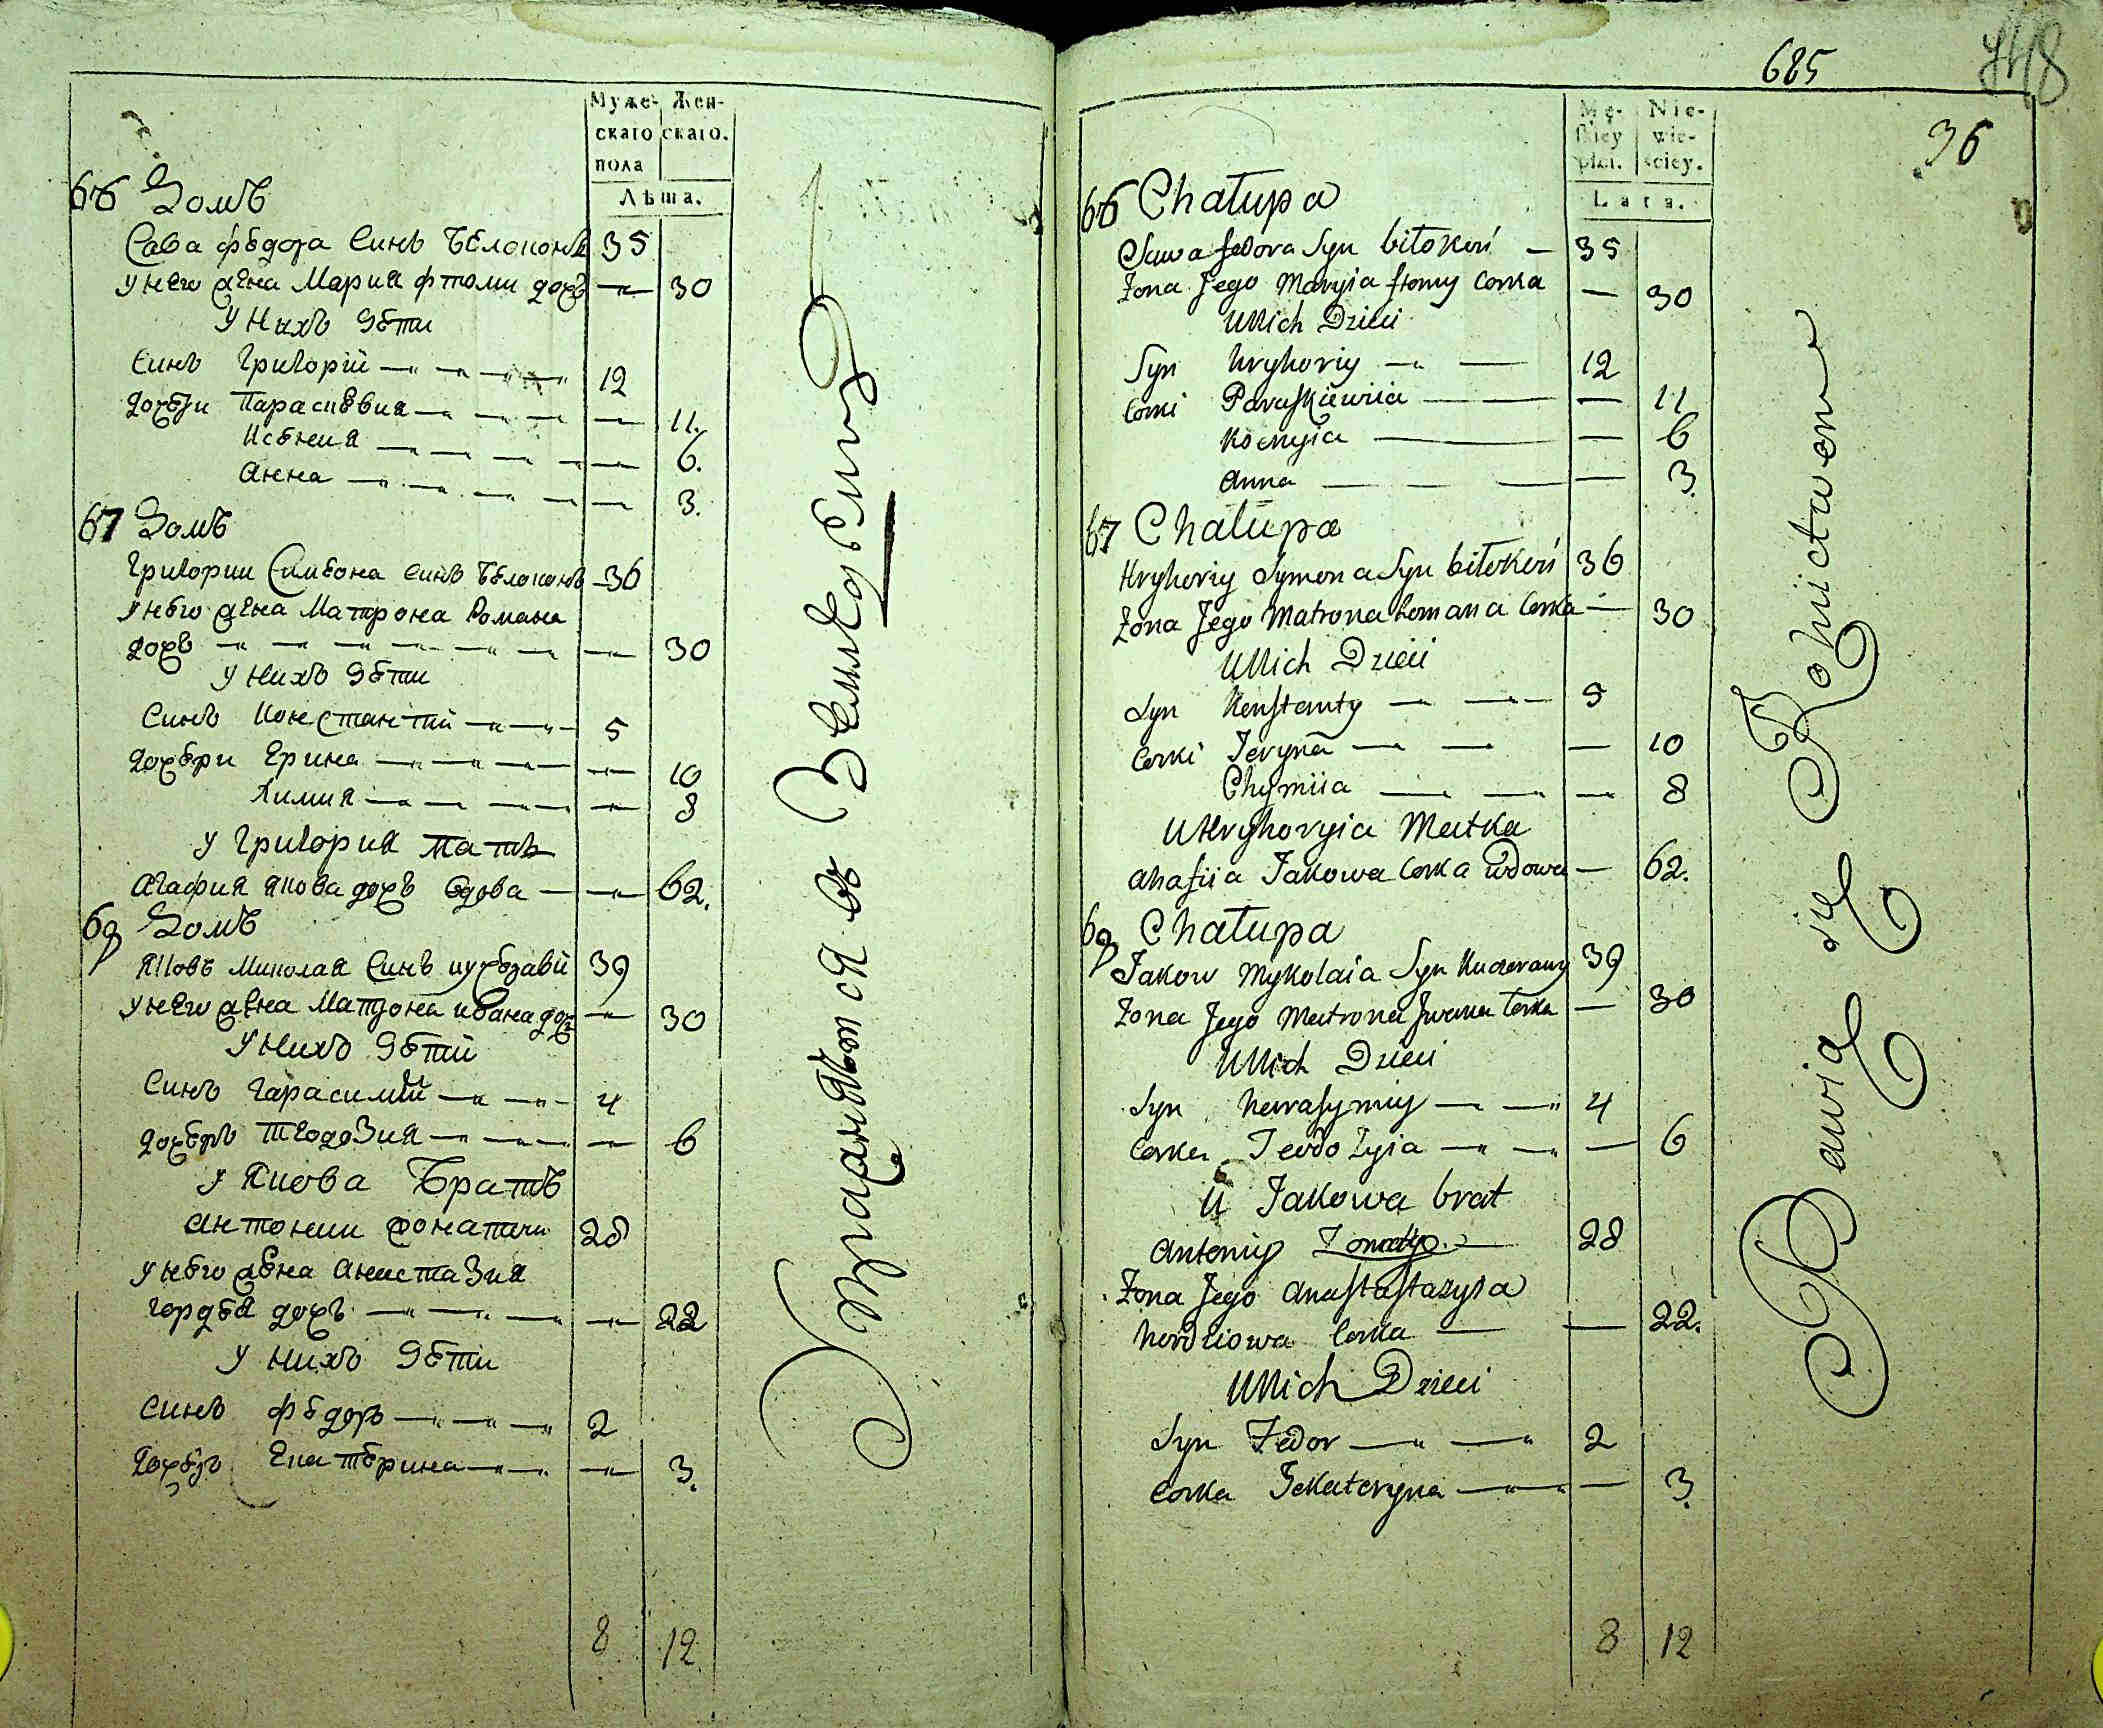 Муже-
Жен-
скаго
скаго.
пола
Лѣта.
66 Домъ
Сава Федора Синъ Бѣлоконь 35
У него жена Мария Фтоми дочь — 30
У нихъ дѣти
Синъ Григорий — 12
дочери Параскевия — 11.
Ксения — 6.
Анна — 3.
67 Домъ
Григории Симеона синъ Бѣлоконь 36
У него жена Матрона Романа
дочь — 30
У нихъ дѣти
Синъ Константий — 5
дочери Ерина — 10
Химия — 8
У Григория мать
Агафия Якова дочь вдова — 62.
Домъ
Яковъ Миколая Синъ 39
У него жена Матрона Ивана доч — 30
У нихъ дѣтй
Синъ Гарасимий — 4
дочерь Теодозия — 6
У Якова Братъ
Антонии Донатии 28
У него жена Анастазия
Гордѣя дочь — 22
У нихъ дѣти
Синъ Федоръ — 2
дочерь Екатерина — 3.
8 12
685
448
36
Mę-
Nie-
skiey
wie-
płci.
sciey.
Lata.
66 Chałupa
Sawa fedora Syn biłokoń — 35
Żona Jego Maryia ftomy Corka — 30
U Nich Dzieci
Syn hryhoriy — 12
Corki Paraskiewiia — 11
Ksenyia — 6
Anna — 3.
67 Chałupa
Hryhoriy Symona Syn biłokoń 36
Żona Jego Matrona Romana Corka — 30
U Nich Dzieci
Syn Konstanty — 5
Corki Jeryna — 10
Chymiia — 8
U Hryhoryia Matka
Ahafiia Jakowa Corka Wdowa — 62.
Chałupa
Jakow Mykolaia Syn Kuderawy 39
Żona Jego Matrona Jwana Corka — 30
U Nich Dzieci
Syn harasymiy — 4
Corka Teodozyia — 6
U Jakowa brat
Antoniy Donatyo 28
Żona Jego Anastastazyia
hordiiowa Corka — 22.
U Nich Dzieci
Syn Fedor — 2
Corka Jekateryna — 3.
8 12